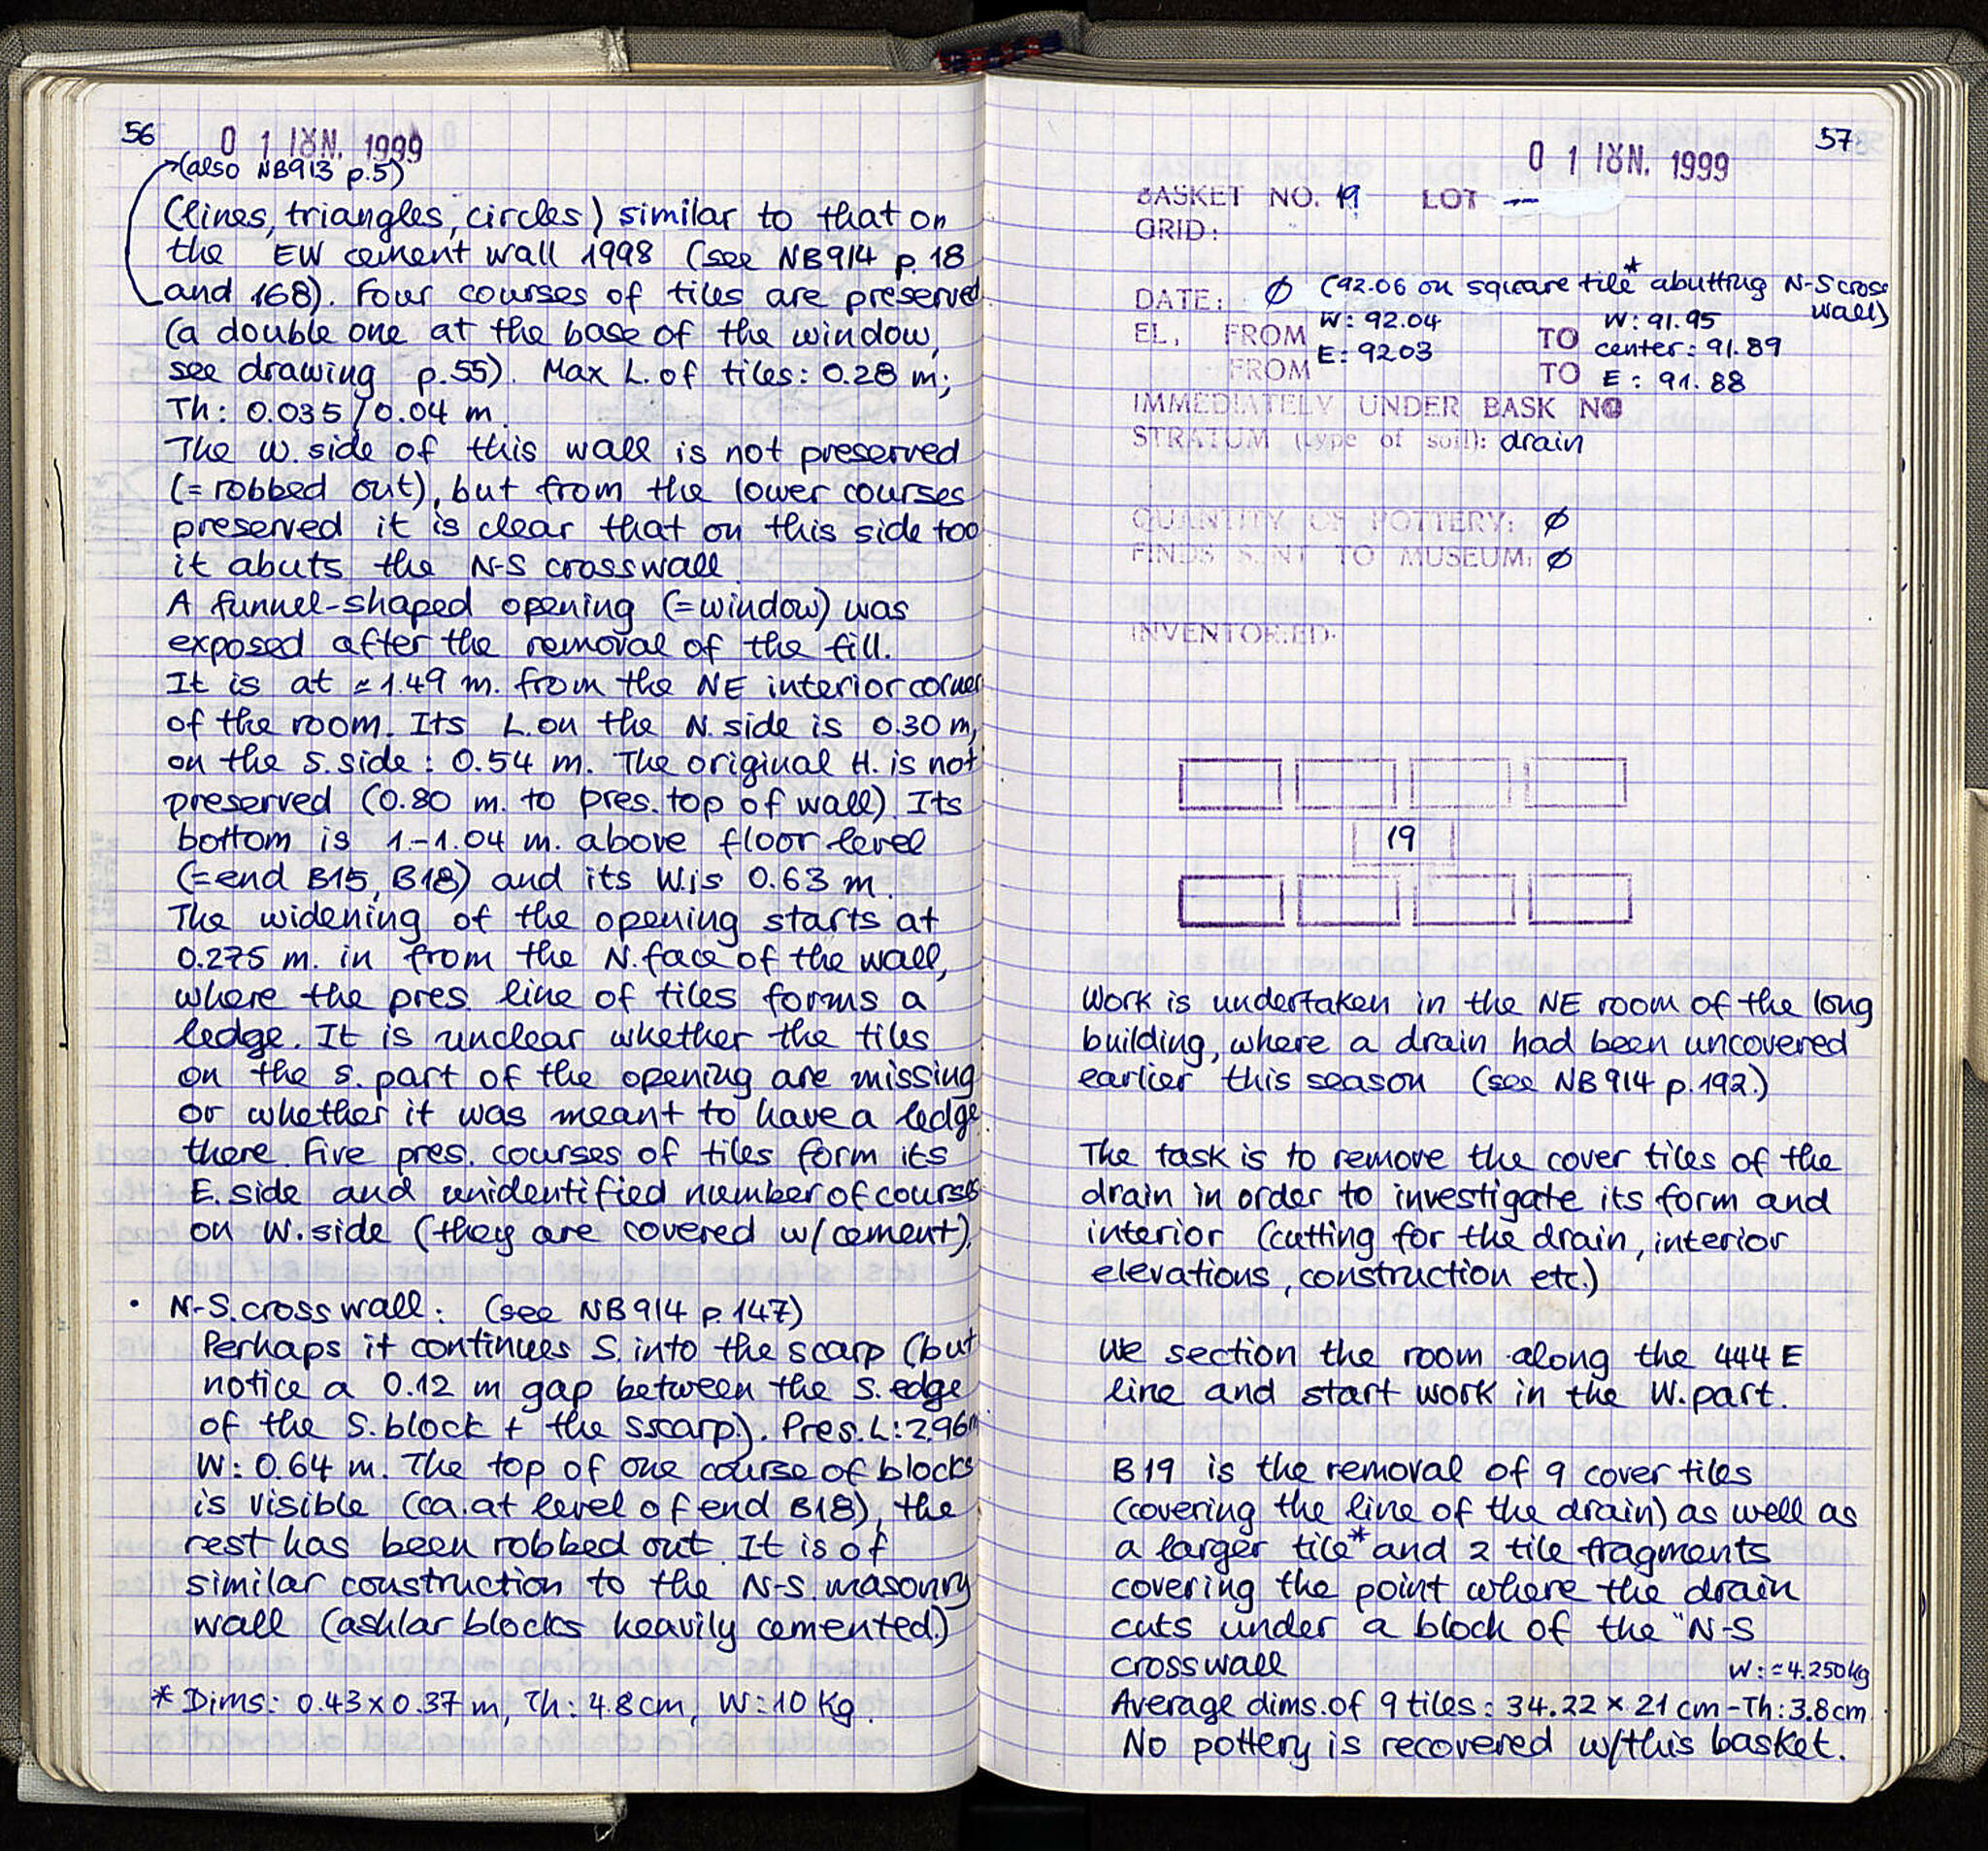 56
0 1 ΙΟΥΝ. 1999
(also NB913 p.5)
(lines, triangles, circles) similar to that on
the EW cement wall 1998 (see NB914 p. 18
and 168). Four courses of tiles are preserved
(a double one at the base of the window,
see drawing p.55). Max L. of tiles: 0.28 m;
Th: 0.035/0.04 m.
The W. side of this wall is not preserved
(= robbed out), but from the lower courses
preserved it is clear that on this side too
it abuts the N-S crosswall.
A funnel-shaped opening (=window) was
exposed after the removal of the fill.
It is at ≃1.49 m. from the NE interior corner
of the room. Its L. on the N. side is 0.30 m,
on the S. side: 0.54 m. The original H. is not
preserved (0.80 m. to pres. top of wall). Its
bottom is 1.-1.04 m. above floor level
(=end B15, B18) and its W. is 0.63 m.
The widening of the opening starts at
0.275 m. in from the N. face of the wall,
where the pres. line of tiles forms a
ledge. It is unclear whether the tiles
on the S. part of the opening are missing
or whether it was meant to have a ledge
there. Five pres. courses of tiles form its
E. side and unidentified number of courses
on W. side (they are covered w/cement).
• N-S. cross wall: (see NB914 p. 147)
Perhaps it continues S. into the scarp (but
notice a 0.12 m gap between the S. edge
of the S. block + the S scarp). Pres. L: 2.96m
W: 0.64 m. The top of one course of blocks
is visible (ca. at level of end B18), the
rest has been robbed out. It is of
similar construction to the N-S. masonry
wall (ashlar blocks heavily cemented.)
* Dims: 0.43 x 0.37 m, Th: 4.8cm, W: 10 Kg.
57
0 1 ΙΟΥΝ. 1999
BASKET NO. 19 LOT —
GRID:
DATE: Ø (92.06 on square tile* abutting N-S cross
wall)
EL, FROM W: 92.04 TO W: 91.95
E: 9203 center: 91.89
FROM TO E: 91.88
IMMEDIATELY UNDER BASK NO
STRATUM (type of soil): drain
QUANTITY OF POTTERY: Ø
FINDS SENT TO MUSEUM: Ø
INVENTORIED:
19
Work is undertaken in the NE room of the long
building, where a drain had been uncovered
earlier this season (see NB914 p.192.)
The task is to remove the cover tiles of the
drain in order to investigate its form and
interior (cutting for the drain, interior
elevations, construction etc.)
We section the room along the 444 E
line and start work in the W. part.
B19 is the removal of 9 cover tiles
(covering the line of the drain) as well as
a larger tile* and 2 tile fragments
covering the point where the drain
cuts under a block of the "N-S
crosswall
W: ≃4.250kg
Average dims. of 9 tiles: 34.22 x 21 cm - Th: 3.8cm.
No pottery is recovered w/this basket.